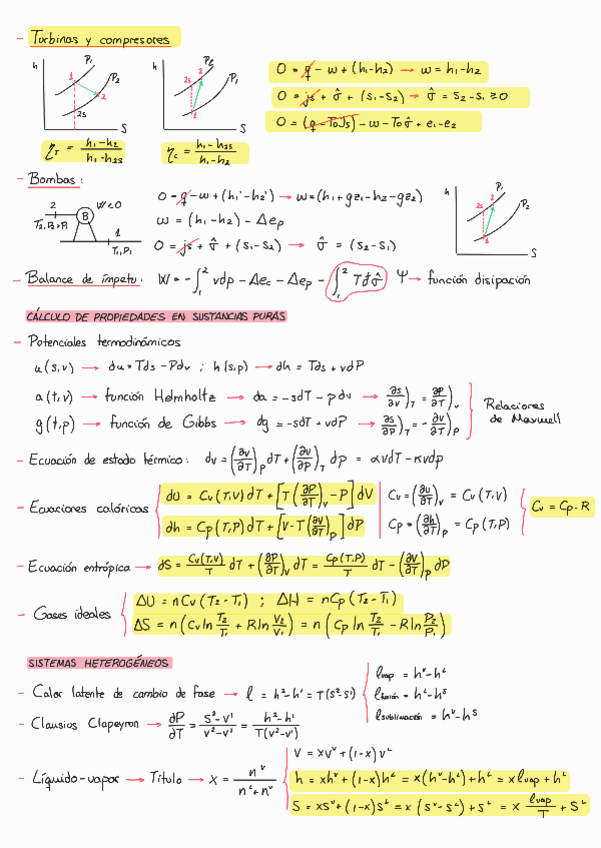 - Turbinas y compresores
h P₁ P₂ 1 2 2s S
h P₂ P₁ 2s 2 1 S
0 = q - w + (h₁-h₂) → w = h₁-h₂
0 = js + σ̂ + (s₁-s₂) → σ̂ = s₂-s₁ ≥ 0
0 = (q - T₀js) - w - T₀σ̂ + e₁-e₂
η_T = (h₁-h₂)/(h₁-h₂s)
η_c = (h₁-h₂s)/(h₁-h₂)
- Bombas:
2 B W<0
T₂,P₂>P₁ 1 T₁,P₁
0 = q - w + (h₁'-h₂') → w = (h₁+gz₁-h₂-gz₂)
w = (h₁-h₂) - Δep
0 = js + σ̂ + (s₁-s₂) → σ̂ = (s₂-s₁)
h P₁ P₂ 2s 2 1 S
- Balance de ímpetu: W = -∫₁² vdp - Δec - Δep - ∫₁² Tđσ̂ Ψ → función disipación
CÁLCULO DE PROPIEDADES EN SUSTANCIAS PURAS
- Potenciales termodinámicos
u(s,v) → du = Tds - Pdv ; h(s,p) → dh = Tds + vdP
a(t,v) → función Helmholtz → da = -sdT - pdv → ∂s/∂v)_T = ∂P/∂T)_v
g(t,p) → función de Gibbs → dg = -sdT + vdP → ∂s/∂P)_T = -∂v/∂T)_P
Relaciones de Maxwell
- Ecuación de estado térmico: dv = (∂v/∂T)_P dT + (∂v/∂P)_T dp = αvdT - κvdp
- Ecuaciones calóricas
dU = Cv(T,V)dT + [T(∂P/∂T)_v - P]dV
dh = Cp(T,P)dT + [v - T(∂v/∂T)_P]dP
Cv = (∂u/∂T)_v = Cv(T,V)
Cp = (∂h/∂T)_P = Cp(T,P)
Cv = Cp - R
- Ecuación entrópica → dS = Cv(T,V)/T dT + (∂P/∂T)_v dT = Cp(T,P)/T dT - (∂v/∂T)_P dP
- Gases ideales
ΔU = nCv(T₂-T₁) ; ΔH = nCp(T₂-T₁)
ΔS = n(Cv ln T₂/T₁ + R ln V₂/V₁) = n(Cp ln T₂/T₁ - R ln P₂/P₁)
SISTEMAS HETEROGÉNEOS
- Calor latente de cambio de fase → l = h²-h¹ = T(s²-s¹)
l vap = hᵛ-hᴸ
l fusión = hᴸ-hˢ
l sublimación = hᵛ-hˢ
- Clausios Clapeyron → ∂P/∂T = (s²-s¹)/(v²-v¹) = (h²-h¹)/(T(v²-v¹))
- Líquido-vapor → Título → x = nᵛ/(nᴸ+nᵛ)
V = xvᵛ + (1-x)vᴸ
h = xhᵛ + (1-x)hᴸ = x(hᵛ-hᴸ) + hᴸ = x l vap + hᴸ
S = xsᵛ + (1-x)sᴸ = x(sᵛ-sᴸ) + sᴸ = x l vap/T + sᴸ